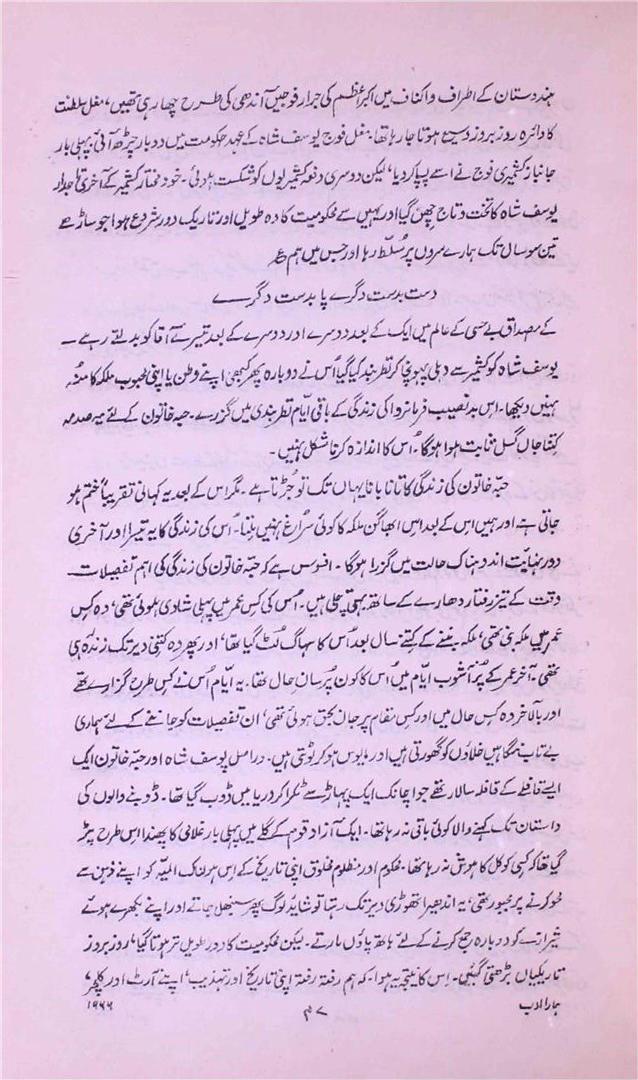 ہندوستان کے اطراف و اکناف میں اکبر اعظم کی جرار فوجیں آندھی کی طرح چھا رہی تھیں، مغل سلطنت
کا دائرہ روز بروز وسیع ہوتا جا رہا تھا۔ مغل فوج یوسف شاہ کے عہد حکومت میں دو بار چڑھ آئی۔ پہلی بار
جانباز کشمیری فوج نے اسے پسپا کر دیا، لیکن دوسری دفعہ کشمیریوں کو شکست ہوئی۔ خود مختار کشمیر کے آخری تاجدار
یوسف شاہ کا تخت و تاج چھن گیا اور یہیں سے محکومیت کا وہ طویل اور تاریک دور شروع ہوا جو ساڑھے
تین سو سال تک ہمارے سروں پر مسلّط رہا اور جس میں ہم ؏
دست بدست دگرے پا بدست دگرے
کے مصداق بے بسی کے عالم میں ایک کے بعد دوسرے اور دوسرے کے بعد تیسرے آقا کو بدلتے رہے ۔
یوسف شاہ کو کشمیر سے دہلی پہونچا کر نظر بند کیا گیا اُس نے دوبارہ پھر کبھی اپنے وطن یا اپنی محبوب ملکہ کا منھ
نہیں دیکھا۔ اس بدنصیب فرمانروا کی زندگی کے باقی ایّام نظر بندی میں گزرے۔ حبہ خاتون کے لئے یہ صدمہ
کتنا جاں گسل ثابت ہوا ہوگا۔ اُس کا اندازہ کرنا مشکل نہیں۔
حبّہ خاتون کی زندگی کا تانا بانا یہاں تک تو جُڑتا ہے۔ مگر اس کے بعد یہ کہانی تقریباً ختم ہو
جاتی ہے اور ہمیں اس کے بعد اس ابھاگن ملکہ کا کوئی سُراغ نہیں ملتا۔ اُس کی زندگی کا یہ تیسرا اور آخری
دور نہایت اندوہناک حالت میں گزرا ہوگا۔ افسوس ہے کہ حبّہ خاتون کی زندگی کی اہم تفصیلات
وقت کے تیز رفتار دھارے کے ساتھ بہتی چلی ہیں۔ اُس کی کس عمر میں پہلی شادی ہوئی تھی، وہ کس
عمر میں ملکہ بنی تھی، ملکہ بننے کے کتنے سال بعد اُس کا سہاگ لُٹ گیا تھا، اور پھر وہ کتنی دیر تک زندہ رہی
تھی۔ آخر عمر کے پُر آشوب ایّام میں اُس کا کون پُرسان حال تھا۔ یہ ایّام اُس نے کس طرح گزارے تھے
اور بالآخر وہ کس حال میں اور کس مقام پر جان بحق ہوئی تھی، ان تفصیلات کو جاننے کے لئے ہماری
بے تاب نگاہیں خلاؤں کو گھورتی ہیں اور مایوس ہو کر لوٹتی ہیں۔ دراصل یوسف شاہ اور حبّہ خاتون ایک
ایسے قافلے کے قافلہ سالار تھے جو اچانک ایک پہاڑ سے ٹکرا کر دریا میں ڈوب گیا تھا۔ ڈوبنے والوں کی
داستان تک کہنے والا کوئی باقی نہ رہا تھا۔ ایک آزاد قوم کے گلے میں پہلی بار غلامی کا پھندا اس طرح پڑ
گیا تھا کہ کسی کو کل کا ہوش نہ رہا تھا۔ محکوم اور مظلوم مخلوق اپنی تاریخ کے اس ہولناک المیہ کو اپنے ذہن سے
محو کرنے پر مجبور تھی، یہ اندھیرا تھوڑی دیر تک رہتا تو شاید لوگ پھر سنبھل جاتے اور اپنے بکھرے ہوئے
شیرازے کو دوبارہ جمع کرنے کے لئے ہاتھ پاؤں مارتے۔ لیکن محکومیت کا دور طویل تر ہوتا گیا، روز بروز
تاریکیاں بڑھتی گئیں۔ اس کا نتیجہ یہ ہوا کہ ہم رفتہ رفتہ اپنی تاریخ اور تہذیب، اپنے آرٹ اور کلچر،
ہمارا ادب
۴۷
۱۹۶۶